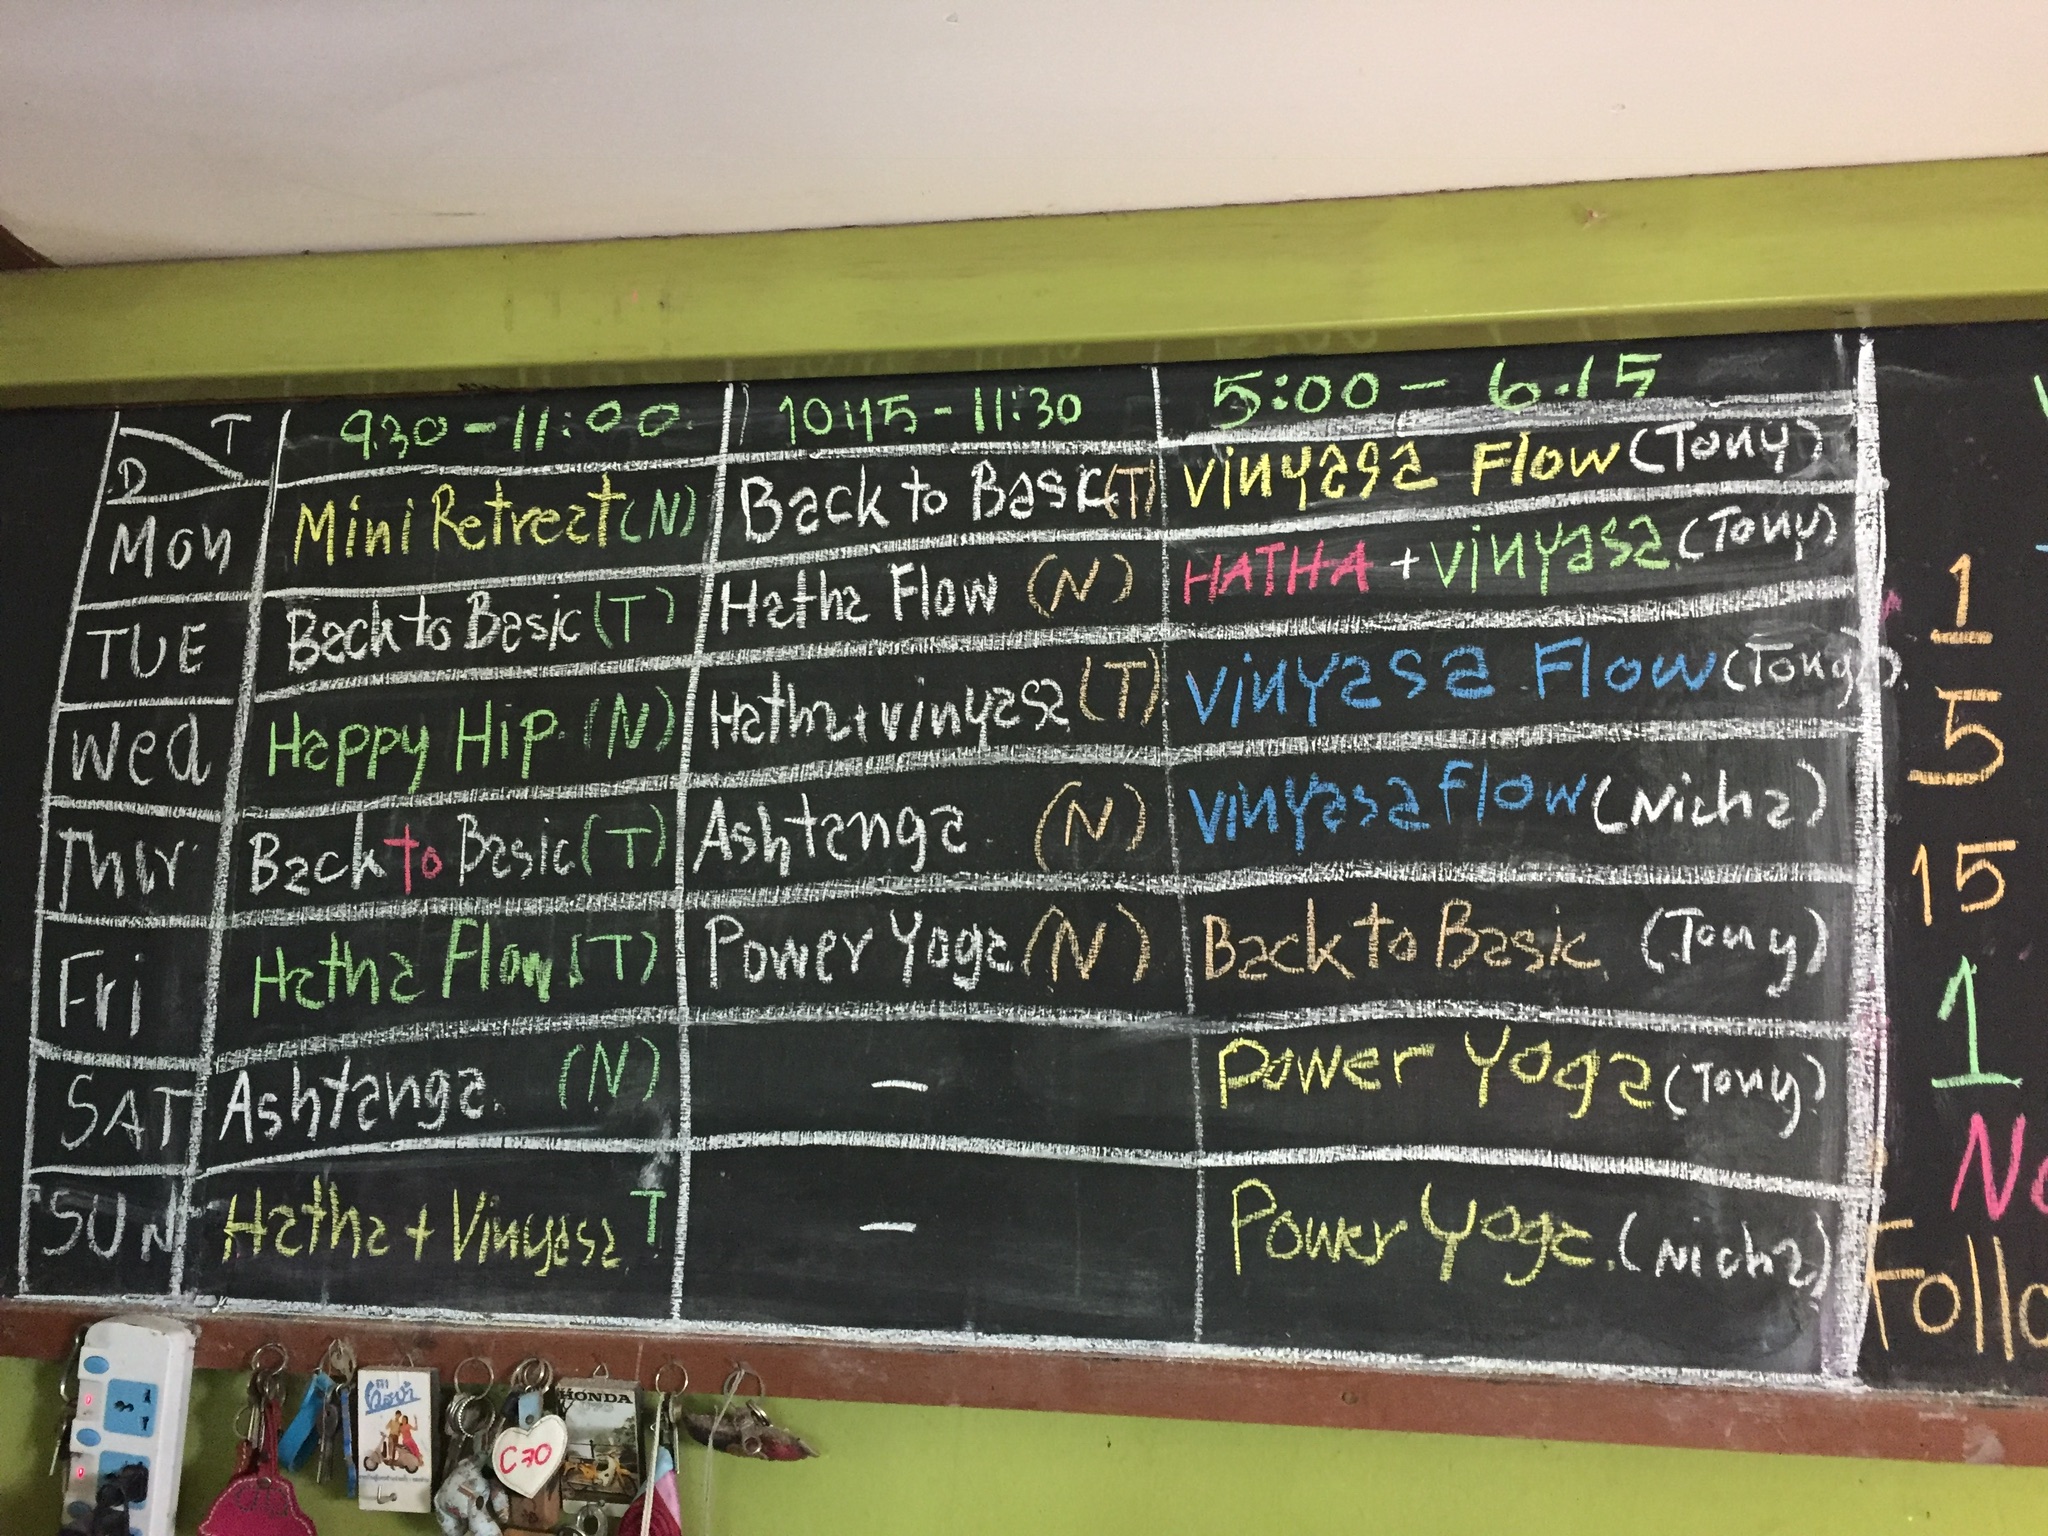 D T 9.30 - 11:00 10:15 - 11:30 5:00 - 6.15
Mon Mini Retreat (N) Back to Basic (T) Vinyasa Flow (Tony)
TUE Back to Basic (T) Hatha Flow (N) HATHA + Vinyasa (Tony)
Wed Happy Hip (N) Hatha + vinyasa (T) Vinyasa Flow (Tony)
Thur Back to Basic (T) Ashtanga (N) Vinyasa Flow (Nicha)
Fri Hatha Flow (T) Power Yoga (N) Back to Basic (Tony)
SAT Ashtanga (N) - Power Yoga (Tony)
SUN Hatha + Vinyasa T - Power Yoga (Nicha)
1
5
15
1
HONDA
C70